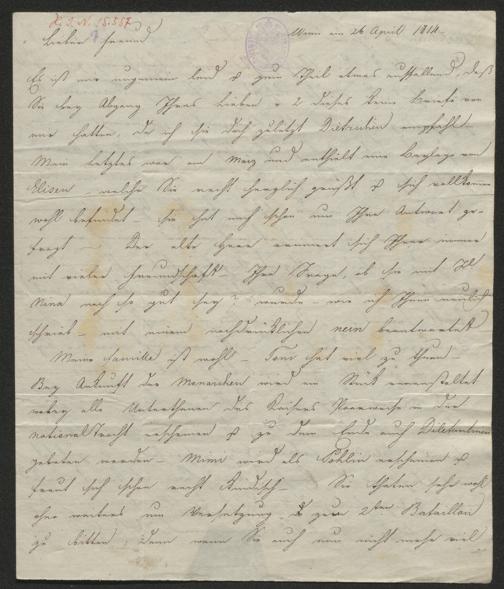 H. I. N. 15.557
Wien am 26 April 1814
Lieber Freund
Es ist mir ungemein leid u zum Theil etwas auffallend, daß
Sie bey Abgang Ihres Lieben v 2 dieses keine Briefe von
mir hatten, da ich sie doch zuletzt empfahl
Mein letztes war im Merz und enthielt eine Beylage von
Elisen welche Sie recht herzlich grüßt u sich vollkommen
wohl befindet sie hat mich schon um Ihre Antwort ge-
fragt – Der alte Herr erinnert sich Ihrer immer
mit vieler Freundschaft Ihre Frage, ob sie mit
Nina noch so gut sey? wurde wie ich Ihnen neulich
schrieb – mit einem nachdrücklichen nein beantwortet
Meine Familie ist wohl – hat viel zu thun –
Bey Ankunft der Monarchen wird ein Stück veranstaltet
wobey alle Unterthanen des Kaisers Paarweise in der
national Tracht erscheinen u zu dem Ende auch Diletanten
gebeten werden – Mimi wird als erscheinen u
freut sich schon recht Kindisch – Sie thäten sehr wohl
ohne weiters um Versetzung zum 2ten Bataillon
zu bitten, denn wenn Sie auch nun nicht mehr viel